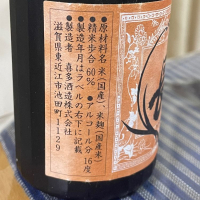 ●原材料名 米(国産)、米麹(国産米)
●精米歩合 60% ●アルコール分 16度
●製造年月はラベルの右下に記載
●製造者 喜多酒造株式会社
滋賀県東近江市池田町1129